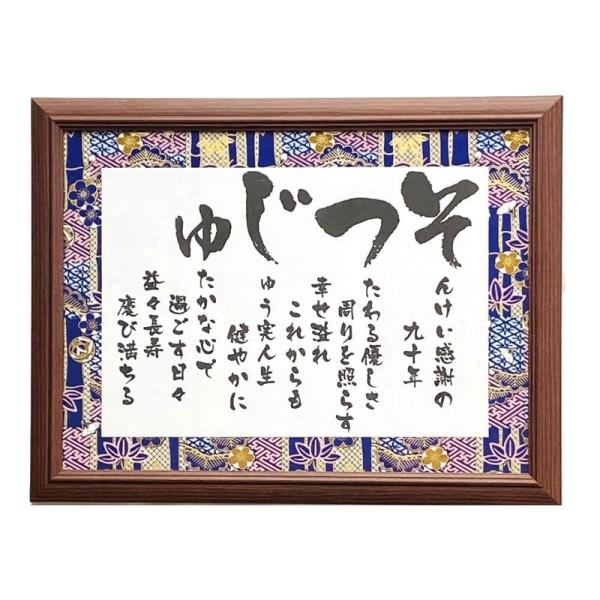 そつじゅ
んけい感謝の
九十年
たわる優しさ
周りを照らす
幸せ溢れ
これからも
ゆう実人生
健やかに
たかな心で
過ごす日々
益々長寿
慶び満ちる